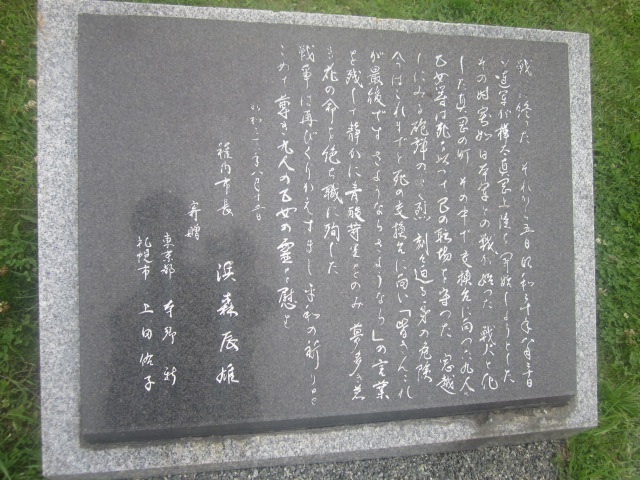 戦いは終った それから五日 昭和二十年八月二十日
ソ連軍が樺太真岡上陸を開始しようとした
その時突如 日本軍との戦が始った 戦火と化
した真岡の町 その中で交換台に向った九人の
乙女等は死を以って己の職場を守った 窓越
しにみる砲弾の 裂 刻々迫る身の危険
今はこれまでと死の交換台に向い「皆さんこれ
が最後です さようなら さようなら」の言葉
を残して静かに青酸苛里をのみ 夢多き若
き花の命を絶ち職に殉じた
戦争は再びくりかえすまじ 平和の祈りを
こめて尊き九人の乙女の霊を慰む
昭和三十八年八月十五日
稚内市長 浜森辰雄
寄贈
東京都 本郷新
札幌市 上田佑子